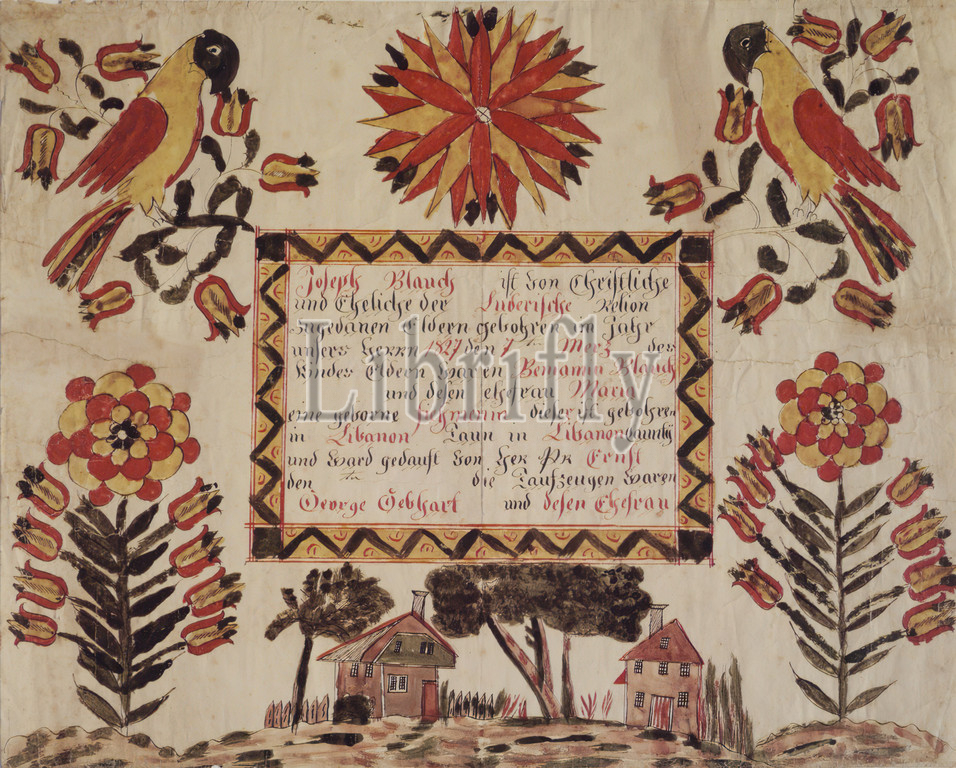 Joseph Blauch ist von Christliche
und Eheliche der Luderische Relion
zugedanen Eldern gebohren im Jahr
unsers Herrn 1827 den 7ten Merz des
Kindes Eldern Waren Beniamin Blauch
und desen ehefrau Maria
eine geborne dieser ist gebohren
in Libanon Taun in Libanon Caunty
und ward gedauft von Her Pr Ernst
den ten die Taufzeugen waren
George Gebhart und desen Ehefrau
Librifly